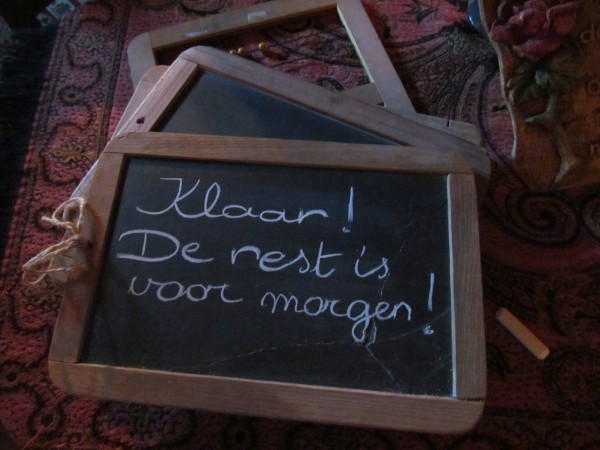 Klaar!
De rest is
voor morgen!